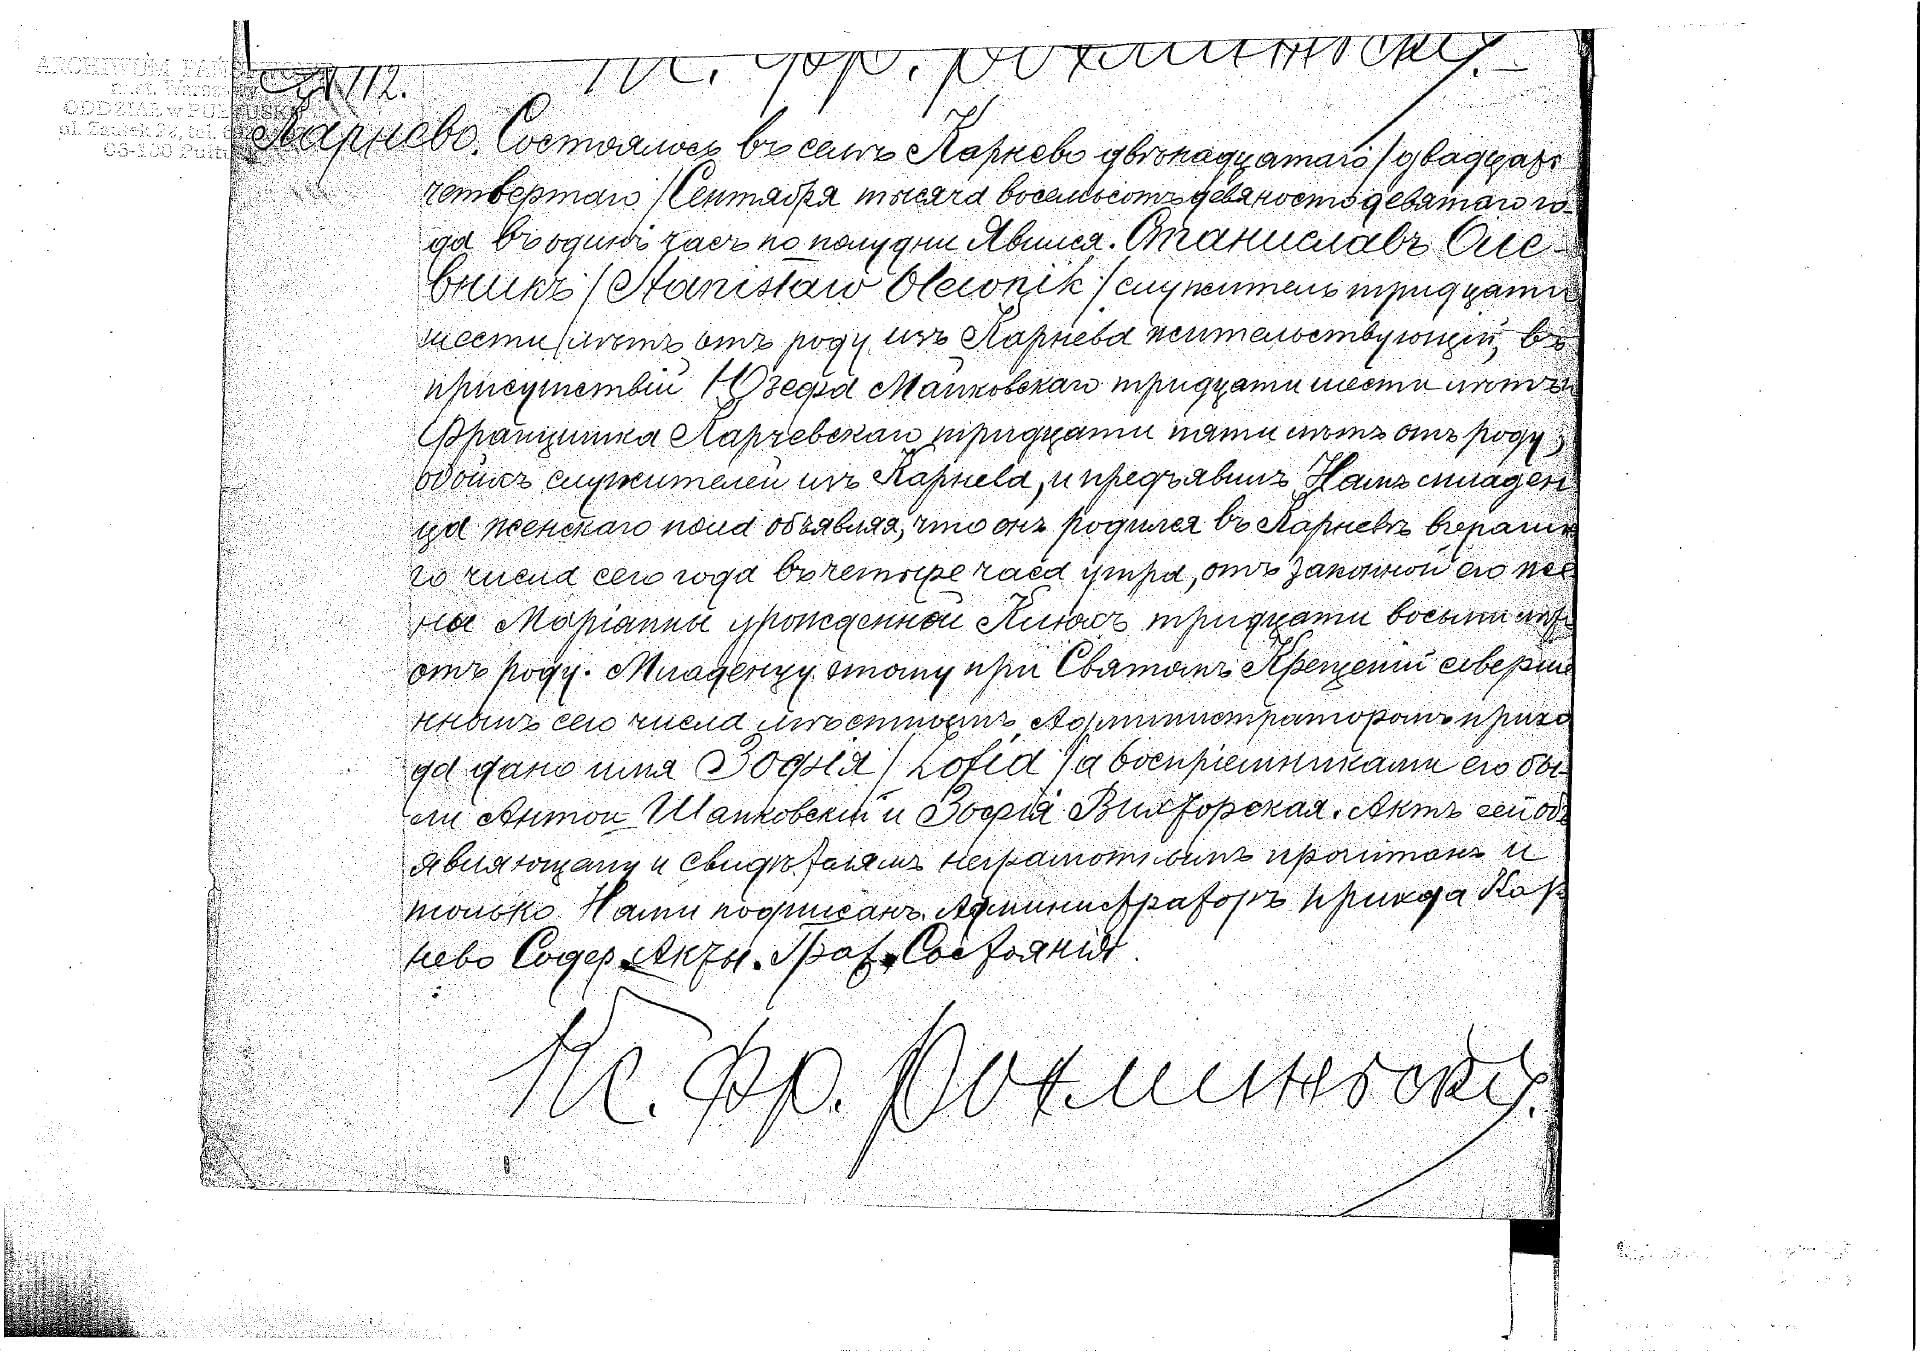 ARCHIWUM PAŃSTWOWE
m.st. Warszawy
ODDZIAŁ w PUŁTUSKU
pl. Zamek 22, tel.
06-100 Pułtusk
Кс. Фр. Рохминьскiй.
112.
Карнево. Состоялось въ селѣ Карнево двѣнадцатаго / двадцать
четвертаго / Сентября тысяча восемьсотъ девяносто девятаго го-
да въ одинъ часъ по полудни Явился. Станиславъ Оле-
вникъ / Stanisław Olewnik / служитель тридцати
шести лѣтъ отъ роду изъ Карнева жительствующiй, въ
присутствiи Юзефа Маиковскаго тридцати шести лѣтъ и
Францишка Карчевскаго тридцати пяти лѣтъ отъ роду,
обоихъ служителей изъ Карнева, и предъявилъ Намъ младен
ца женскаго пола объявляя, что онъ родился въ Карневѣ вчерашня
го числа сего года въ четыре часа утра, отъ законной его же
ны Марiанны урожденной Клюхъ тридцати восьми лѣтъ
отъ роду. Младенцу этому при Святомъ Крещенiи соверше
нномъ сего числа мѣстнымъ Администраторомъ прихо
да дано имя Зофiя / Zofia / а воспрiемниками его бы-
ли Антон Шапковскiй и Зофiя Вихторская. Актъ сей объ
являющему и свидѣтелямъ неграмотнымъ прочитанъ и
только Нами подписанъ. Администраторъ прихода Кар
нево Содер. Акты. Граж. Состоянiя.
Кс. Фр. Рохминьскiй.